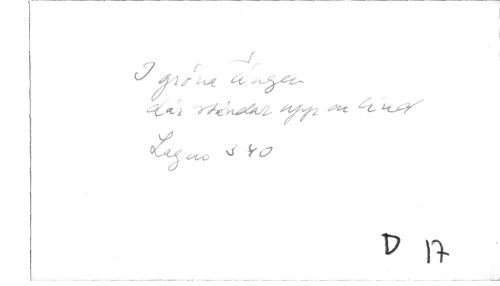 I gröna ängen
där ständar upp en lind
Lagus 340
D 17